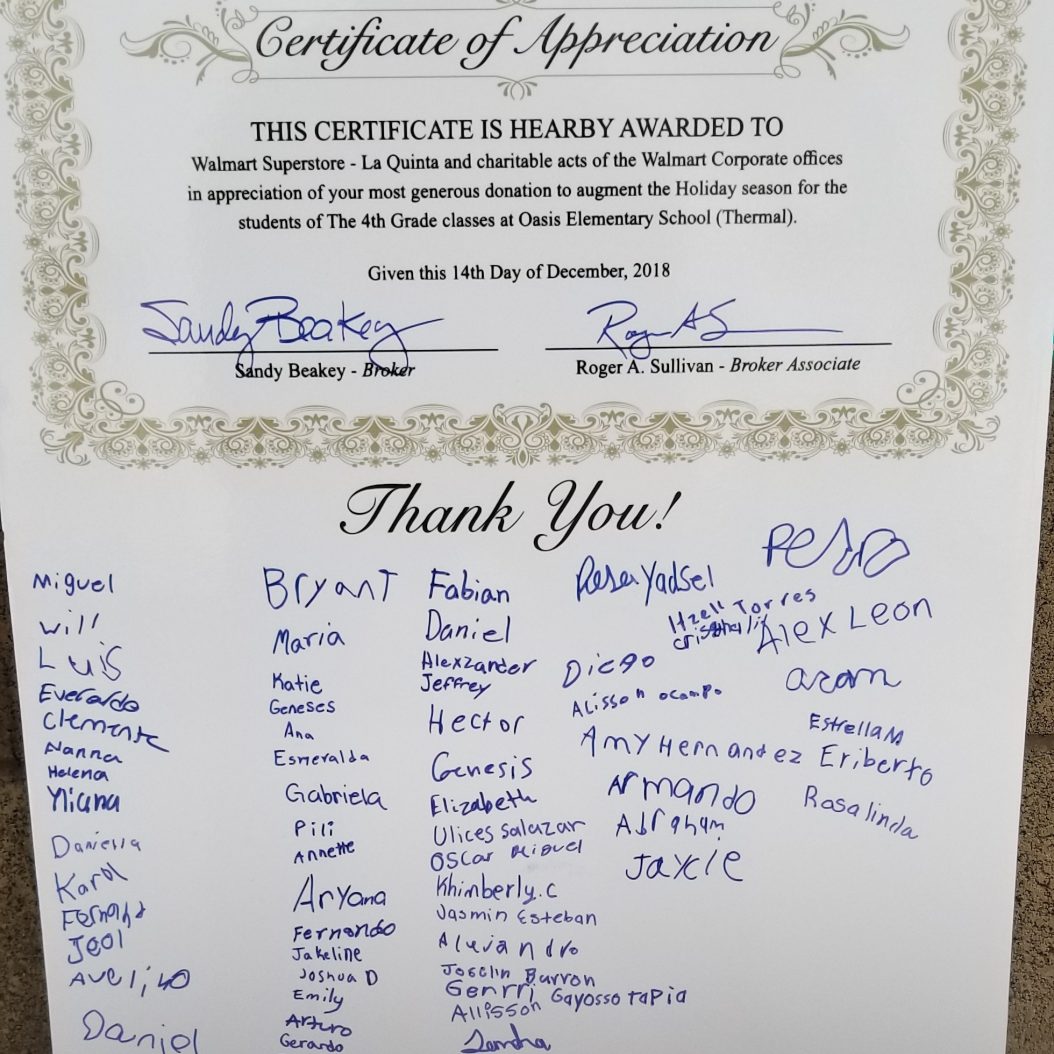 Certificate of Appreciation
THIS CERTIFICATE IS HEARBY AWARDED TO
Walmart Superstore - La Quinta and charitable acts of the Walmart Corporate offices
in appreciation of your most generous donation to augment the Holiday season for the
students of The 4th Grade classes at Oasis Elementary School (Thermal).
Given this 14th Day of December, 2018
Sandy Beakey
Roger A S
Sandy Beakey - Broker
Roger A. Sullivan - Broker Associate
Thank You!
Miguel
Will
Luis
Everardo
Clemente
Nanna
Helena
Daniella
Karol
Fernanda
Jeol
Avelino
Daniel
Bryant
Maria
Katie
Geneses
Ana
Esmeralda
Gabriela
Pili
Annette
Aryana
Fernando
Jakeline
Joshua D
Emily
Arturo
Gerardo
Fabian
Daniel
Alexzander
Jeffrey
Hector
Genesis
Elizabeth
Ulices Salazar
Oscar Miguel
Khimberly.c
Jasmin Esteban
Josclin Barron
Genrri Gayosso tapia
Allisson
Yadsel
Torres
Diego
Alisson ocampo
Amy Hernandez
Armando
Abraham
Jaycie
Pedro
Alex Leon
aron
Estrella M
Eriberto
Rosalinda